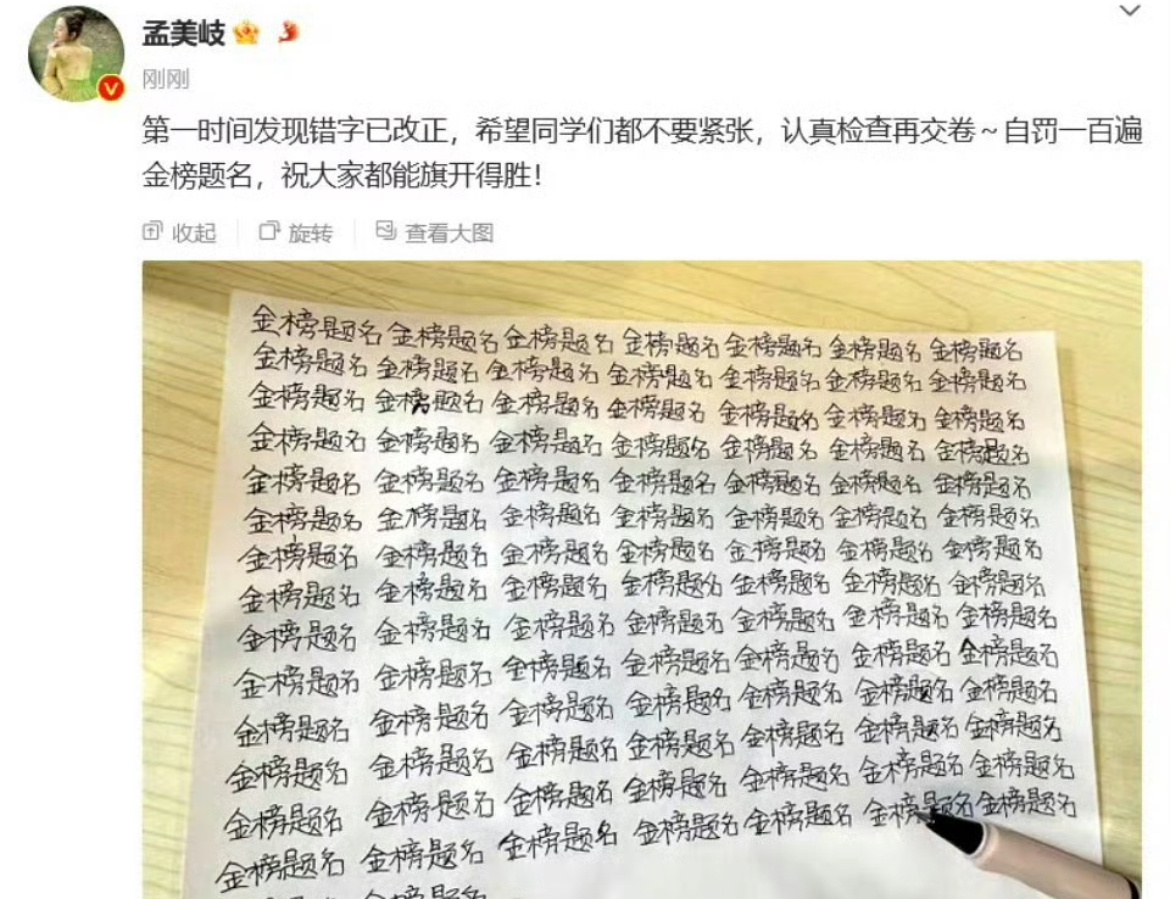 孟美岐
刚刚
第一时间发现错字已改正，希望同学们都不要紧张，认真检查再交卷～自罚一百遍
金榜题名，祝大家都能旗开得胜！
收起 旋转 查看大图
金榜题名 金榜题名 金榜题名 金榜题名 金榜题名 金榜题名 金榜题名
金榜题名 金榜题名 金榜题名 金榜题名 金榜题名 金榜题名 金榜题名
金榜题名 金榜题名 金榜题名 金榜题名 金榜题名 金榜题名 金榜题名
金榜题名 金榜题名 金榜题名 金榜题名 金榜题名 金榜题名 金榜题名
金榜题名 金榜题名 金榜题名 金榜题名 金榜题名 金榜题名 金榜题名
金榜题名 金榜题名 金榜题名 金榜题名 金榜题名 金榜题名 金榜题名
金榜题名 金榜题名 金榜题名 金榜题名 金榜题名 金榜题名 金榜题名
金榜题名 金榜题名 金榜题名 金榜题名 金榜题名 金榜题名 金榜题名
金榜题名 金榜题名 金榜题名 金榜题名 金榜题名 金榜题名 金榜题名
金榜题名 金榜题名 金榜题名 金榜题名 金榜题名 金榜题名 金榜题名
金榜题名 金榜题名 金榜题名 金榜题名 金榜题名 金榜题名 金榜题名
金榜题名 金榜题名 金榜题名 金榜题名 金榜题名 金榜题名 金榜题名
金榜题名 金榜题名 金榜题名 金榜题名 金榜题名 金榜题名 金榜题名
金榜题名 金榜题名 金榜题名 金榜题名 金榜题名 金榜题名 金榜题名